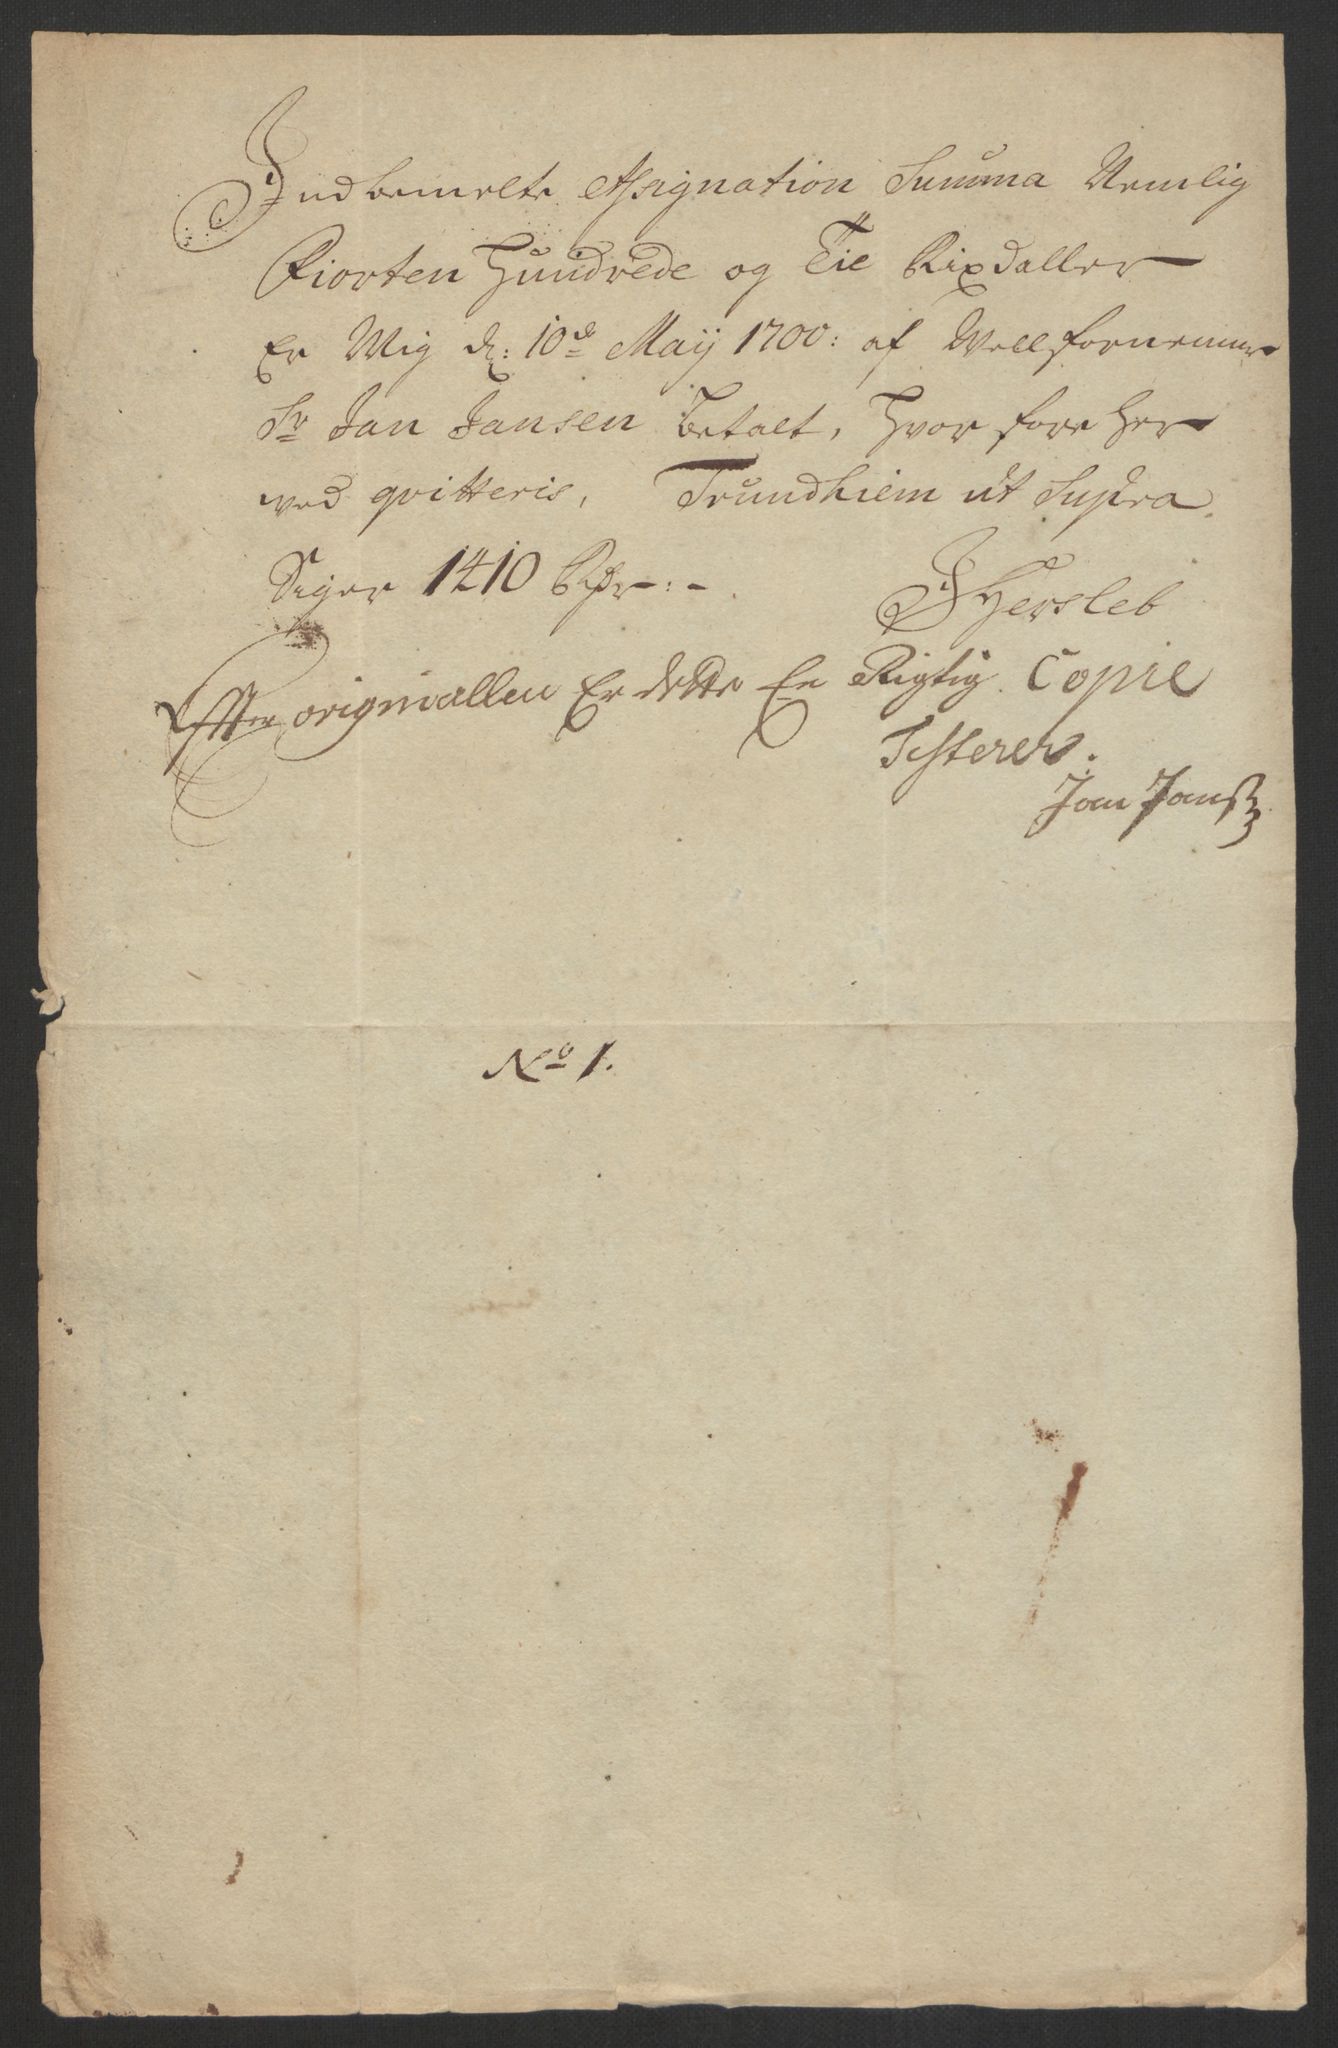 Indbemelte Assignation Summa Nemlig
Fiorten Hundrede og Tie Rixdaller
Er Mig d: 10de Maij 1700: af Wellfornemme
Sr Jan Jansen betalt, Hvorfore her
ved qvitteris, Trundhiem ut Supra.
Siger 1410 Rdr:-
JHersleb
Efter originallen Er dette En Rigtig Copie
Testerer.
Jan Jansz
No 1.